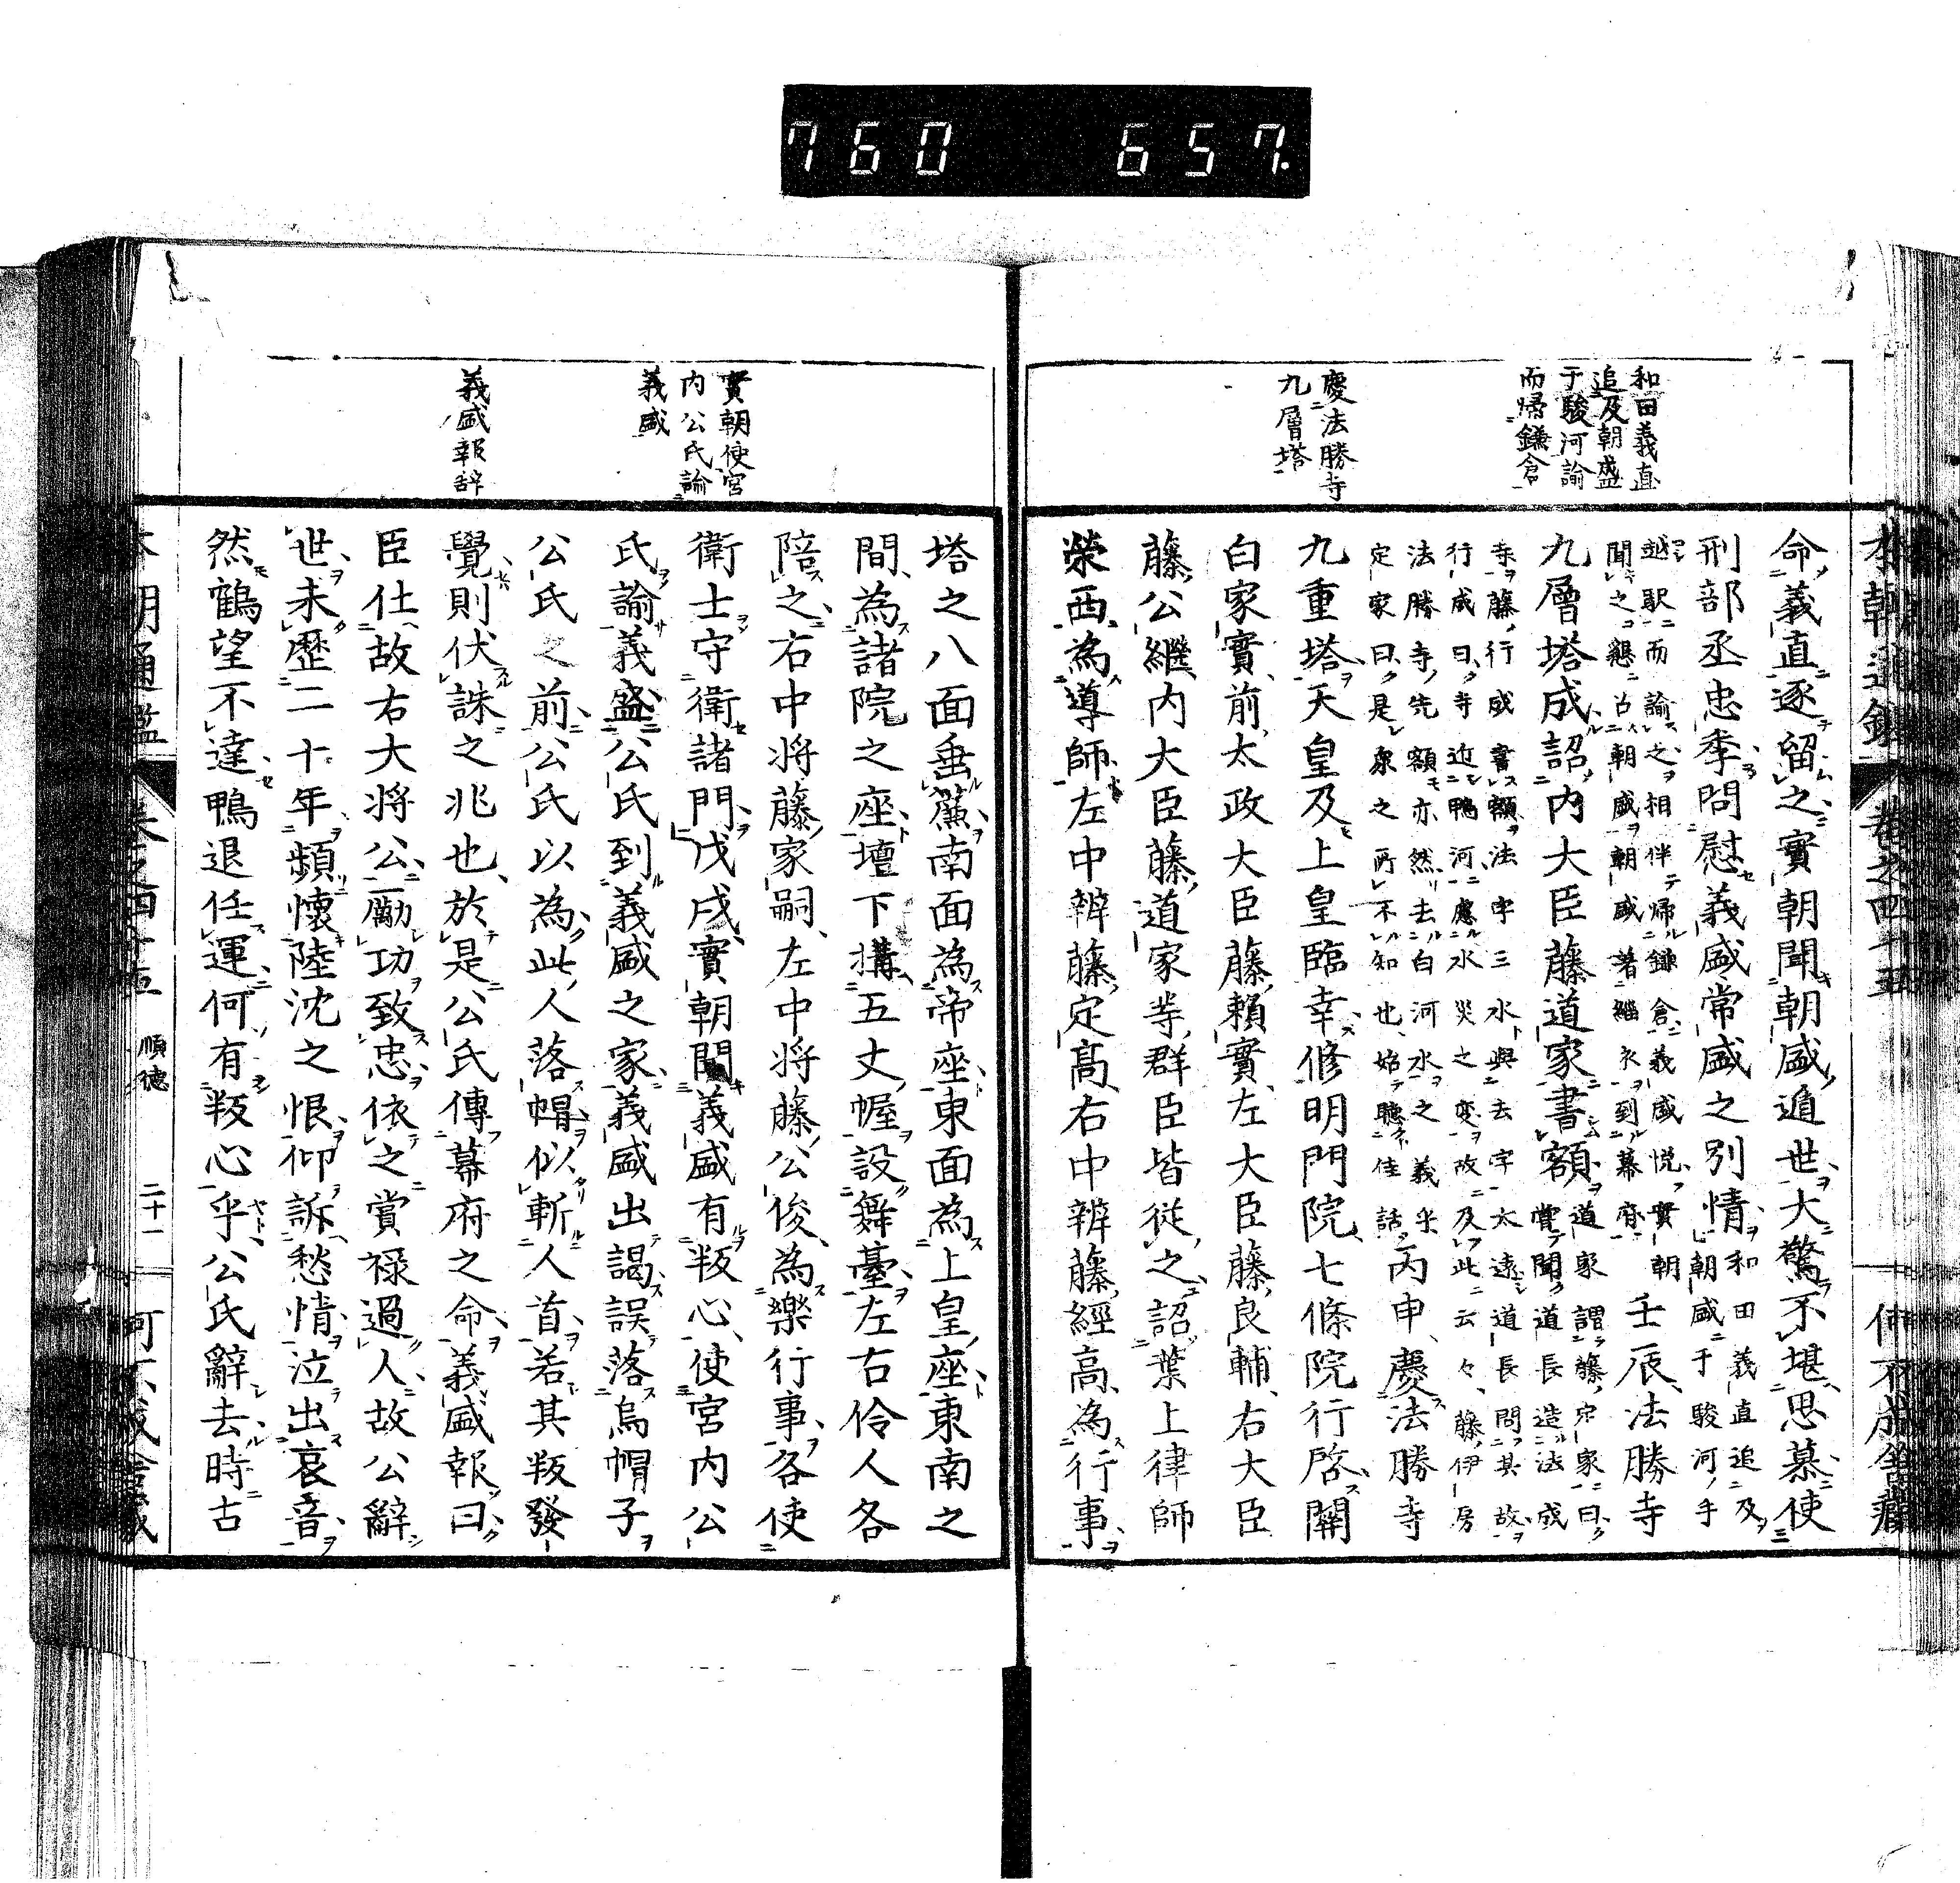 760 657.
和田義直
追及朝盛
于駿河諭
而歸鎌倉
慶法勝寺
九層塔
命義直逐留之實朝聞朝盛遁世大驚不堪思慕使
刑部丞忠季問慰義盛常盛之別情和田義直追及
朝盛于駿河手
越駅而諭之相伴歸鎌倉義盛悦實朝
聞之懇召朝盛朝盛著緇衣到幕府
壬辰法勝寺
九層塔成詔内大臣藤道家書額道家謂藤定家曰
嘗聞道長造法成
寺藤行成書額法字三水與去字太遠道長問其故
行成曰寺近鴨河應水災之変故及此云々藤伊房
法勝寺先額亦然去白河水之義乎
定家曰是康之所不知也始聴佳話
丙申慶法勝寺
九重塔天皇及上皇臨幸修明門院七條院行啓關
白家實前太政大臣藤頼實左大臣藤良輔右大臣
藤公繼内大臣藤道家等群臣皆従之詔葉上律師
榮西為導師左中辨藤定髙右中辨藤經高為行事
實朝使宮
内公氏諭
義盛
義盛報辞
塔之八面垂簾南面為帝座東面為上皇座東南之
間為諸院之座壇下搆五丈幄設舞臺左右伶人各
陪之右中将藤家嗣左中将藤公俊為樂行事各使
衛士守衛諸門戊戌實朝聞義盛有叛心使宮内公
氏諭義盛公氏到義盛之家義盛出謁誤落烏帽子
公氏之前公氏以為此人落帽似斬人首若其叛發
覺則伏誅之兆也於是公氏傳幕府之命義盛報曰
臣仕故右大将公勵功致忠依之賞禄過人故公辭
世未歷二十年頻懷陸沈之恨仰訴愁情泣出哀音
然鶴望不達鴨退任運何有叛心乎公氏辭去時古
本朝通鑑 卷之四十五 順徳 二十一